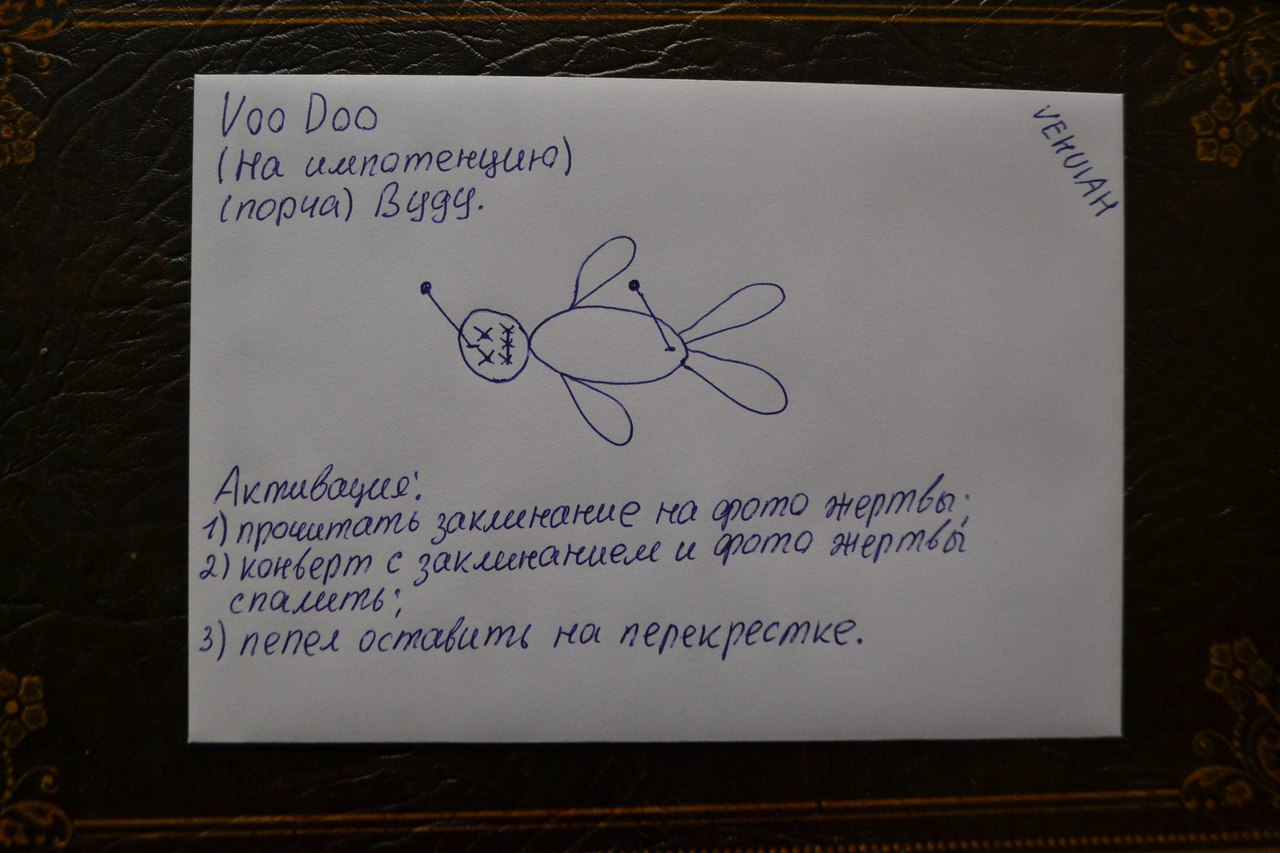 Voo Doo
(На импотенцию)
(порча) Вуду.
VEHUIAH
Активация:
1) прочитать заклинание на фото жертвы;
2) конверт с заклинанием и фото жертвы
спалить;
3) пепел оставить на перекрестке.